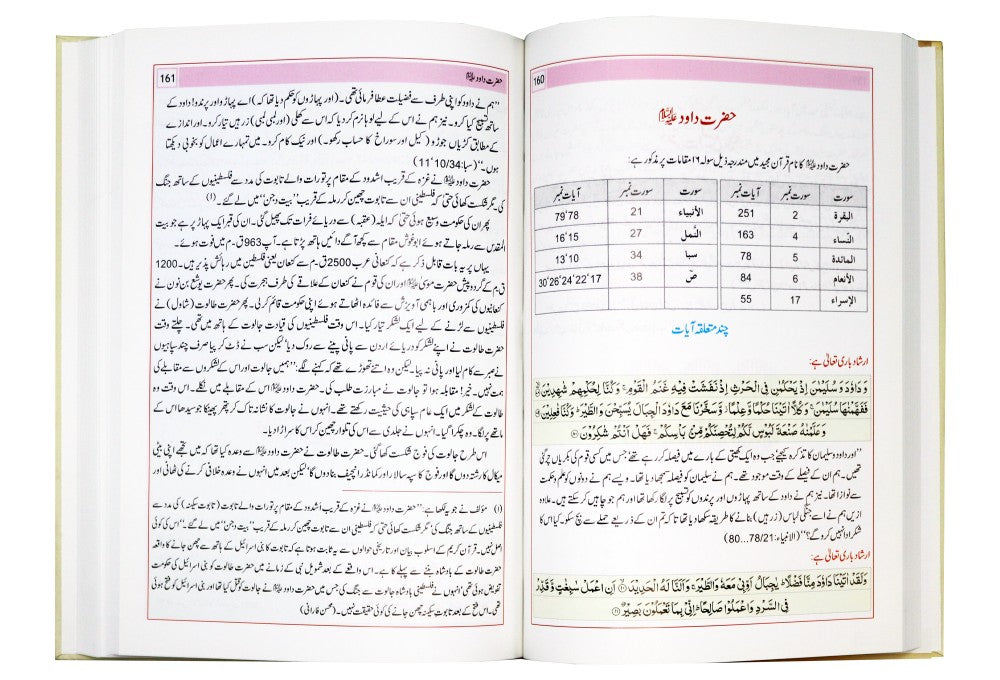 160
حضرت داود علیہ السلام
حضرت داود علیہ السلام کا نام قرآن مجید میں مندرجہ ذیل سولہ ۱۶ مقامات پر مذکور ہے:
سورت سورت نمبر آیات نمبر سورت سورت نمبر آیات نمبر
البقرة 2 251 الأنبياء 21 79'78
النّساء 4 163 النّمل 27 16'15
المائدة 5 78 سبا 34 13'10
الأنعام 6 84 صٓ 38 30'26'24'22'17
الإسراء 17 55
چند متعلقہ آیات
ارشاد باری تعالیٰ ہے:
وَ دَاوٗدَ وَ سُلَيْمٰنَ اِذْ يَحْكُمٰنِ فِي الْحَرْثِ اِذْ نَفَشَتْ فِيْهِ غَنَمُ الْقَوْمِ ۚ وَ كُنَّا لِحُكْمِهِمْ شٰهِدِيْنَ
فَفَهَّمْنٰهَا سُلَيْمٰنَ ۚ وَ كُلًّا اٰتَيْنَا حُكْمًا وَّ عِلْمًا ۫ وَّ سَخَّرْنَا مَعَ دَاوٗدَ الْجِبَالَ يُسَبِّحْنَ وَ الطَّيْرَ ؕ وَ كُنَّا فٰعِلِيْنَ
وَ عَلَّمْنٰهُ صَنْعَةَ لَبُوْسٍ لَّكُمْ لِتُحْصِنَكُمْ مِّنْۢ بَاْسِكُمْ ۚ فَهَلْ اَنْتُمْ شٰكِرُوْنَ
''اور داود و سلیمان کا تذکرہ کیجیے جب وہ ایک کھیتی کے بارے میں فیصلہ کر رہے تھے؛ جس میں کسی قوم کی بکریاں چر گئی
تھیں۔ ہم ان کے فیصلے کے وقت موجود تھے۔ ہم نے سلیمان کو فیصلہ سمجھا دیا تھا۔ ویسے ہم نے دونوں کو علم و حکمت
سے نوازا تھا۔ نیز ہم نے داود کے ساتھ پہاڑوں اور پرندوں کو تسبیح پر لگا رکھا تھا اور ہم جو چاہیں کر سکتے ہیں۔ علاوہ
ازیں ہم نے اسے جنگی لباس (زرہیں) بنانے کا طریقہ سکھا دیا تھا تاکہ تم ان کے ذریعے حملے سے بچ سکو۔ کیا اس کا
شکر ادا نہیں کرو گے؟'' (الأنبیاء: 78/21...80)
ارشاد باری تعالیٰ ہے:
وَ لَقَدْ اٰتَيْنَا دَاوٗدَ مِنَّا فَضْلًا ؕ يٰجِبَالُ اَوِّبِيْ مَعَهٗ وَ الطَّيْرَ ۚ وَ اَلَنَّا لَهُ الْحَدِيْدَ ۙ اَنِ اعْمَلْ سٰبِغٰتٍ وَّ قَدِّرْ
فِي السَّرْدِ وَ اعْمَلُوْا صَالِحًا ؕ اِنِّيْ بِمَا تَعْمَلُوْنَ بَصِيْرٌ
حضرت داود علیہ السلام 161
''ہم نے داود کو اپنی طرف سے فضیلت عطا فرمائی تھی۔ (اور پہاڑوں کو حکم دیا تھا کہ) اے پہاڑو اور پرندو! داود کے
ساتھ تسبیح کیا کرو۔ نیز ہم نے اس کے لیے لوہا نرم کر دیا کہ اس سے کھلی (اور لمبی لمبی) زرہیں تیار کرو۔ اور اندازے
کے مطابق کڑیاں جوڑو (کیل اور سوراخ کا حساب رکھو) اور نیک کام کرو۔ میں تمہارے اعمال کو بخوبی دیکھتا
ہوں۔'' (سبا: 10/34'11)
حضرت داود علیہ السلام نے غزہ کے قریب اشدود کے مقام پر تورات والے تابوت کی مدد سے فلسطینیوں کے ساتھ جنگ
کی۔ مگر شکست کھائی حتیٰ کہ فلسطینی ان سے تابوت چھین کر رملہ کے قریب ''بیت دجن'' میں لے گئے۔ (۱)
پھر ان کی حکومت وسیع ہوئی حتیٰ کہ ایلہ (عقبہ) سے دریائے فرات تک پھیل گئی۔ ان کی قبر ایک پہاڑ پر ہے جو بیت
المقدس سے رملہ جاتے ہوئے ابوغوش مقام سے کچھ آگے دائیں ہاتھ پڑتا ہے۔ آپ 963 ق-م میں فوت ہوئے۔
یہاں پر یہ بات قابل ذکر ہے کہ کنعانی عرب 2500 ق-م سے کنعان یعنی فلسطین میں رہائش پذیر ہیں۔ 1200
ق-م کے گرد و پیش حضرت موسیٰ علیہ السلام اور ان کی قوم نے کنعان کے علاقے کی طرف ہجرت کی۔ پھر حضرت یوشع بن نون نے
کنعانیوں کی کمزوری اور باہمی آویزش سے فائدہ اٹھاتے ہوئے اپنی حکومت قائم کر لی۔ پھر حضرت طالوت (شاول) نے
فلسطینیوں سے لڑنے کے لیے ایک لشکر تیار کیا۔ اس وقت فلسطینیوں کی قیادت جالوت کے ہاتھ میں تھی۔ چلتے وقت
حضرت طالوت نے اپنے لشکر کو دریائے اردن سے پانی پینے سے روک دیا' لیکن سب نے ڈٹ کر پیا صرف چند سپاہیوں
نے صبر سے کام لیا اور پانی نہ پیا۔ لیکن وہ اتنے تھوڑے تھے کہ کہنے لگے: ''ہمیں جالوت اور اس کے لشکروں سے مقابلے کی
ہمت نہیں۔ خیر! مقابلہ ہوا تو جالوت نے مبارزت طلب کی۔ حضرت داود علیہ السلام اس کے مقابلے میں نکلے۔ اس وقت وہ
طالوت کے لشکر میں ایک عام سپاہی کی حیثیت رکھتے تھے۔ انہوں نے جالوت کا نشانہ تاک کر پتھر پھینکا جو سیدھا اس کے
ماتھے پر لگا۔ وہ چکرا گیا۔ انہوں نے جلدی سے اس کی تلوار چھین کر اس کا سر اڑا دیا۔
اس طرح جالوت کی فوج شکست کھا گئی۔ حضرت طالوت نے حضرت داود علیہ السلام سے وعدہ کیا تھا کہ میں تجھے اپنی بیٹی
میکال کا رشتہ دوں گا اور فوج کا سپہ سالار اور کمانڈر انچیف بنا دوں گا' لیکن بعد میں انہوں نے وعدہ خلافی کرنے کی ٹھانی اور
(۱) مؤلف نے جو یہ لکھا ہے: ''حضرت داود علیہ السلام نے غزہ کے قریب اشدود کے مقام پر تورات والے تابوت (تابوت سکینہ) کی مدد سے
فلسطینیوں کے ساتھ جنگ کی' مگر شکست کھائی حتیٰ کہ فلسطینی ان سے تابوت چھین کر رملہ کے قریب ''بیت دجن'' میں لے گئے۔'' اس کی کوئی
اصل نہیں۔ قرآن کریم کے اسلوب بیان اور تاریخی حوالوں سے یہ ثابت ہوتا ہے کہ تابوت کا بنی اسرائیل کے ہاتھ سے چھن جانے کا واقعہ
حضرت طالوت کے بادشاہ بننے سے پہلے کا ہے۔ اس واقعے کے بعد شمویل نبی کے زمانے میں حضرت طالوت کو بنی اسرائیل کی حکومت
تفویض ہوئی تھی' انہوں نے فلسطینی بادشاہ جالوت سے جنگ کی جس میں حضرت داود علیہ السلام نے جالوت کو قتل کیا تھا اور بنی اسرائیل کو فتح ہوئی
تھی۔ اس فتح کے بعد تابوت سکینہ چھن جانے کی کوئی حقیقت نہیں۔ (محسن فارانی)